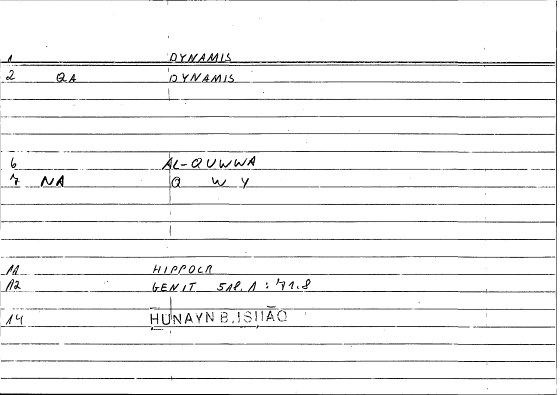 1 DYNAMIS
2 QA DYNAMIS
6 AL-QUWWA
7 NA Q W Y
11 HIPPOCR
12 GENIT 518.1 : 71.8
14 HUNAYN B.ISHĀQ